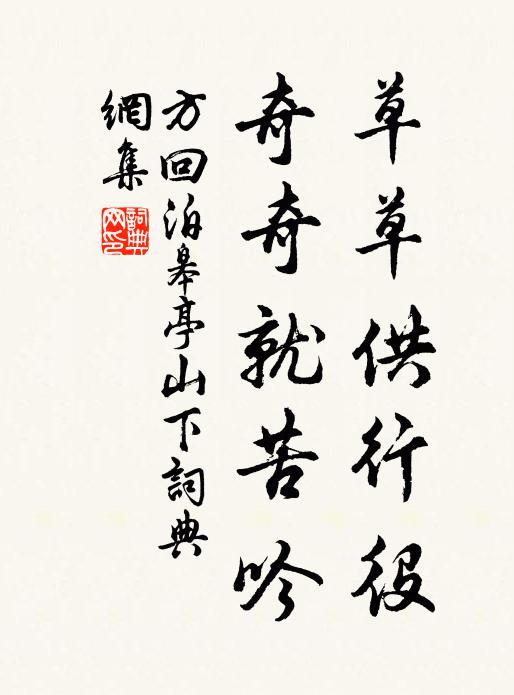 草草供行役
奇奇就苦吟
方回泊皋亭山下詞典
網集
詞典
网印